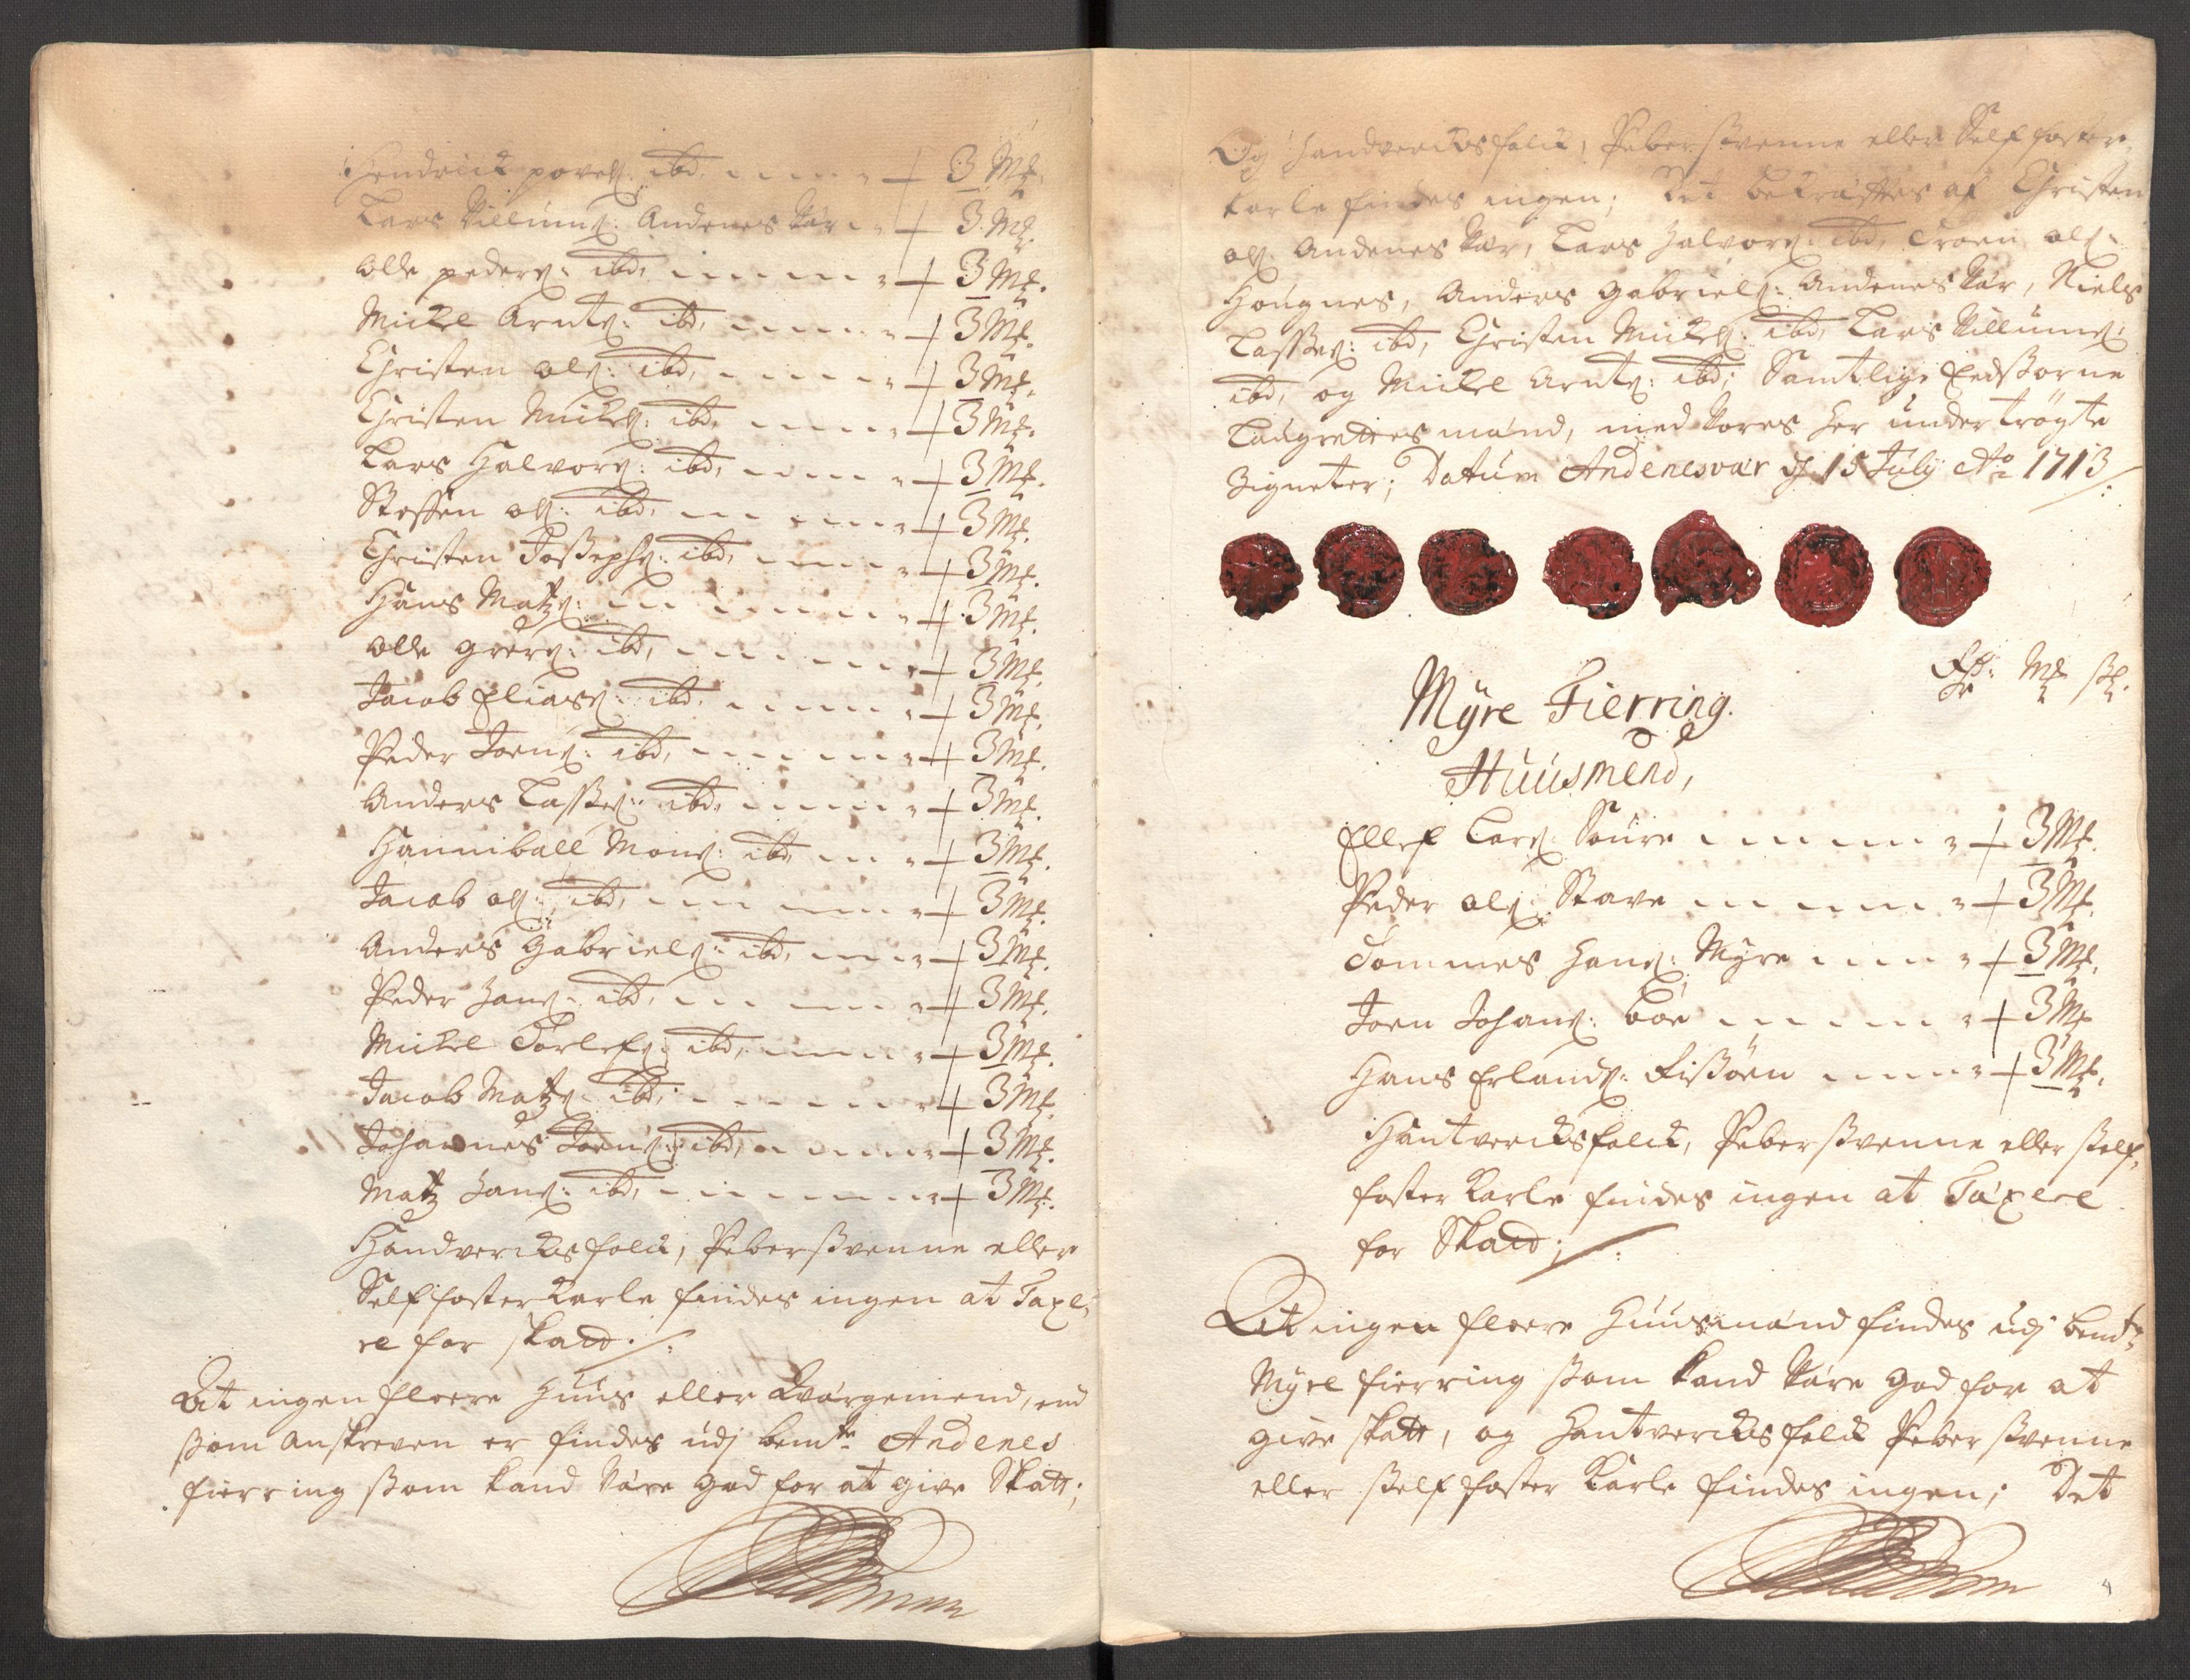 Hendrick povels: ibd, - - - - - 3 Mk.
Lars Villums: Andenes Vær - - 3 Mk.
Olle peders: ibd, - - - - - - 3 Mk.
Mickel Arnts: ibd, - - - - - 3 Mk.
Christen ols: ibd, - - - - - 3 Mk.
Christen Mickels: ibd, - - - - - 3 Mk.
Lars Halvors: ibd, - - - - - 3 Mk.
Steffen ols: ibd, - - - - - - 3 Mk.
Christen Jossephs: ibd, - - - - - 3 Mk.
Hans Matzs: - - - - - - - 3 Mk.
Olle grers: ibd, - - - - - - 3 Mk.
Jacob Eliass: ibd, - - - - - 3 Mk.
Peder Joens: ibd, - - - - - - 3 Mk.
Anders Lasses: ibd, - - - - - 3 Mk.
Hanniball Mons: ibd, - - - - 3 Mk.
Jacob ols: ibd, - - - - - - 3 Mk.
Anders Gabriels: ibd, - - - - 3 Mk.
Peder Hans: ibd, - - - - - - 3 Mk.
Mickel Torlefs: ibd, - - - - - 3 Mk.
Jacob Matzs: ibd, - - - - - - 3 Mk.
Johannes Joens: ibd, - - - - - 3 Mk.
Matz Hans: ibd, - - - - - - - 3 Mk.
Handvercksfolck, Pebersvenne eller
Selffosterkarle findes ingen at Taxe,
re for skatt ./.
At ingen fleere Huus eller Kværgemend, end
ssom anskreven er findes udj bemte Andenes
fierring ssom kand være god for at give Skatt;
Og handvercksfolck, Pebersvenne eller Selffoster,
karle findes ingen; Det bekræftes af Christen
ols: Andenes vær, Lars Halvors: ibd, Troen ols:
Hougnes, Anders Gabriels: Andenes vær, Niels
Lasses: ibd, Christen Mickels: ibd, Lars Villums:
ibd, og Mickel Arnts: ibd; Samtlige Eedssorne
Laugrettes mænd, med vores her undertrøgte
Zigneter; Datum Andenesvær d 15 July Ao 1713 /:
Rdr: Mk sk.
Myre Fierring.
Huusmend,
Ellef Lars: Soure - - - - - - 3 Mk.
Peder ols: Stave - - - - - - 3 Mk.
Tommes Hans: Myre - - - - - 3 Mk.
Joen Johans: böe - - - - - - 3 Mk
Hans Erlands: Fissöen - - - - - 3 Mk.
Hantvercksfolck, Pebersvenne eller sself,
foster karle findes ingen at Taxere
for Skatt; /:
At ingen fleere Huusmænd findes udj bemte
Myre fierring ssom kand være god for at
give skatt, og Hantvercksfolck Pebersvenne
eller sselffoster karle findes ingen; Det
4